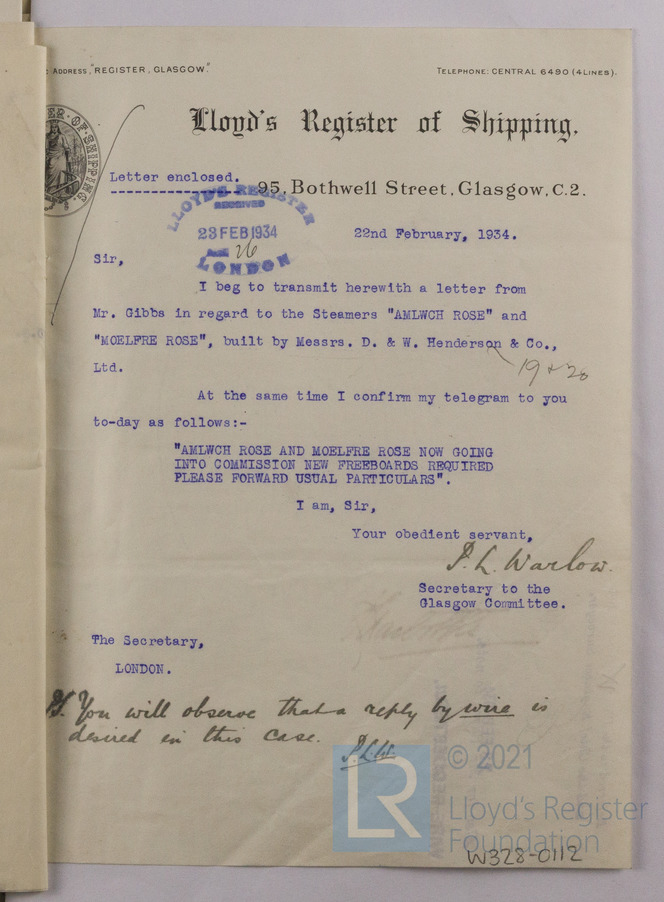 ADDRESS, "REGISTER, GLASGOW."
TELEPHONE: CENTRAL 6490 (4 LINES).
Lloyd's Register of Shipping,
Letter enclosed.
95, Bothwell Street, Glasgow, C.2.
LLOYD'S REGISTER
RECEIVED
23 FEB 1934
26
LONDON
22nd February, 1934.
Sir,
I beg to transmit herewith a letter from
Mr. Gibbs in regard to the Steamers "AMLWCH ROSE" and
"MOELFRE ROSE", built by Messrs. D. & W. Henderson & Co.,
19 + 20
Ltd.
At the same time I confirm my telegram to you
to-day as follows:-
"AMLWCH ROSE AND MOELFRE ROSE NOW GOING
INTO COMMISSION NEW FREEBOARDS REQUIRED
PLEASE FORWARD USUAL PARTICULARS".
I am, Sir,
Your obedient servant,
P. L. Warlow.
Secretary to the
Glasgow Committee.
The Secretary,
LONDON.
You will observe that a reply by wire is
desired in this case.
P.L.W.
LR
© 2021
Lloyd's Register
Foundation
W328-0112